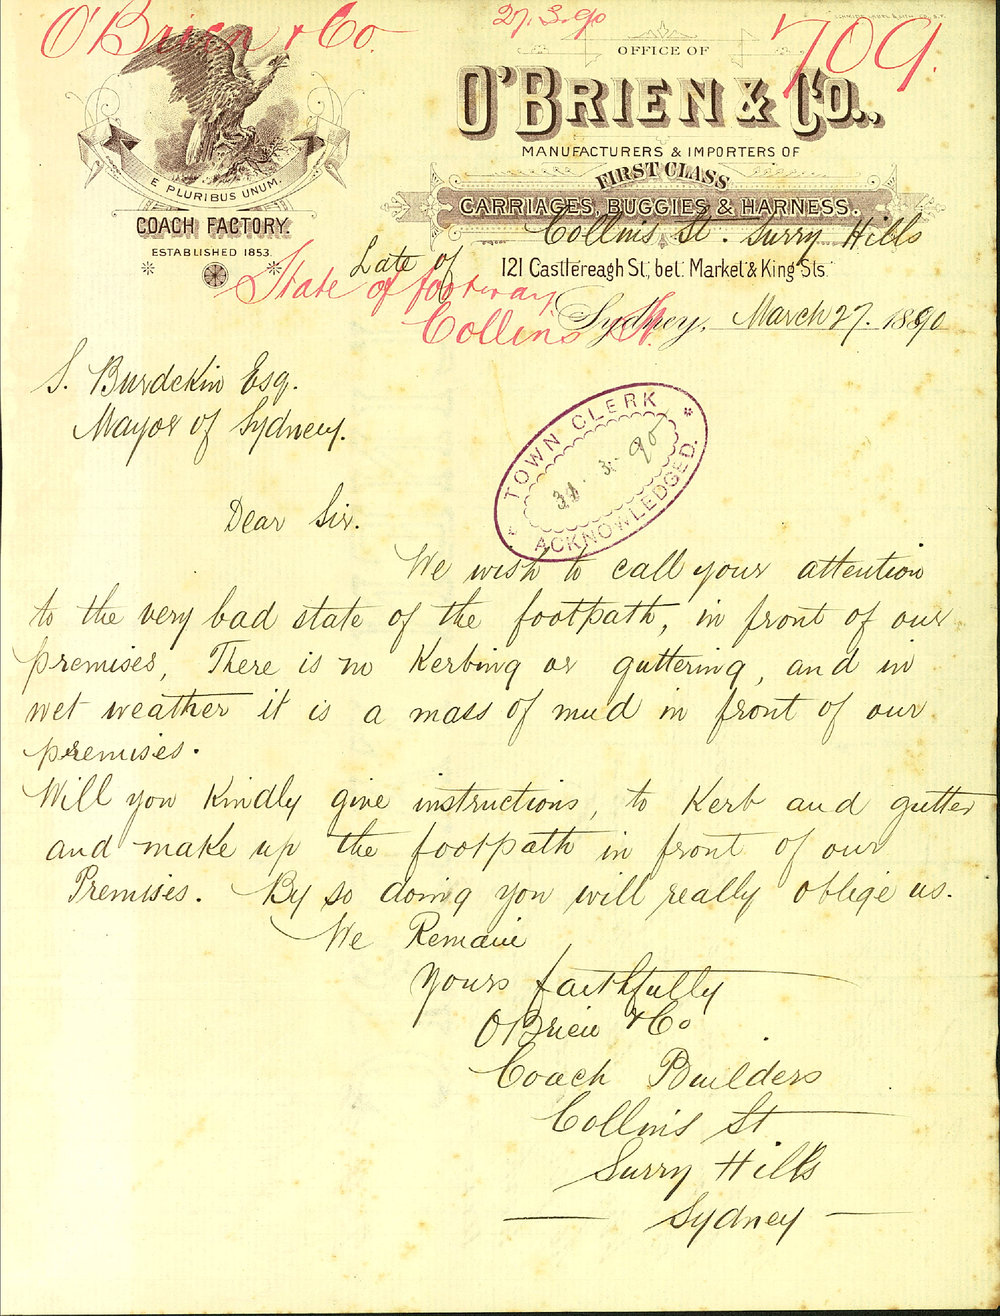 O'Brien & Co.
27.3.90
709.
OFFICE OF
O'BRIEN & CO.,
MANUFACTURERS & IMPORTERS OF
FIRST CLASS
CARRIAGES, BUGGIES & HARNESS.
E PLURIBUS UNUM.
COACH FACTORY.
ESTABLISHED 1853.
Collins St. Surry Hills
Late of
121 Castlereagh St, bet. Market & King Sts.
State of footway
Collins St.
Sydney, March 27. 1890
S. Burdekin Esq.
Mayor of Sydney.
TOWN CLERK
3. 90
ACKNOWLEDGED.
Dear Sir.
We wish to call your attention
to the very bad state of the footpath, in front of our
premises, There is no Kerbing or guttering, and in
wet weather it is a mass of mud in front of our
premises.
Will you Kindly give instructions, to Kerb and gutter
and make up the footpath in front of our
Premises. By so doing you will really oblige us.
We Remain
Yours faithfully
O'Brien & Co
Coach Builders
Collins St
Surry Hills
Sydney